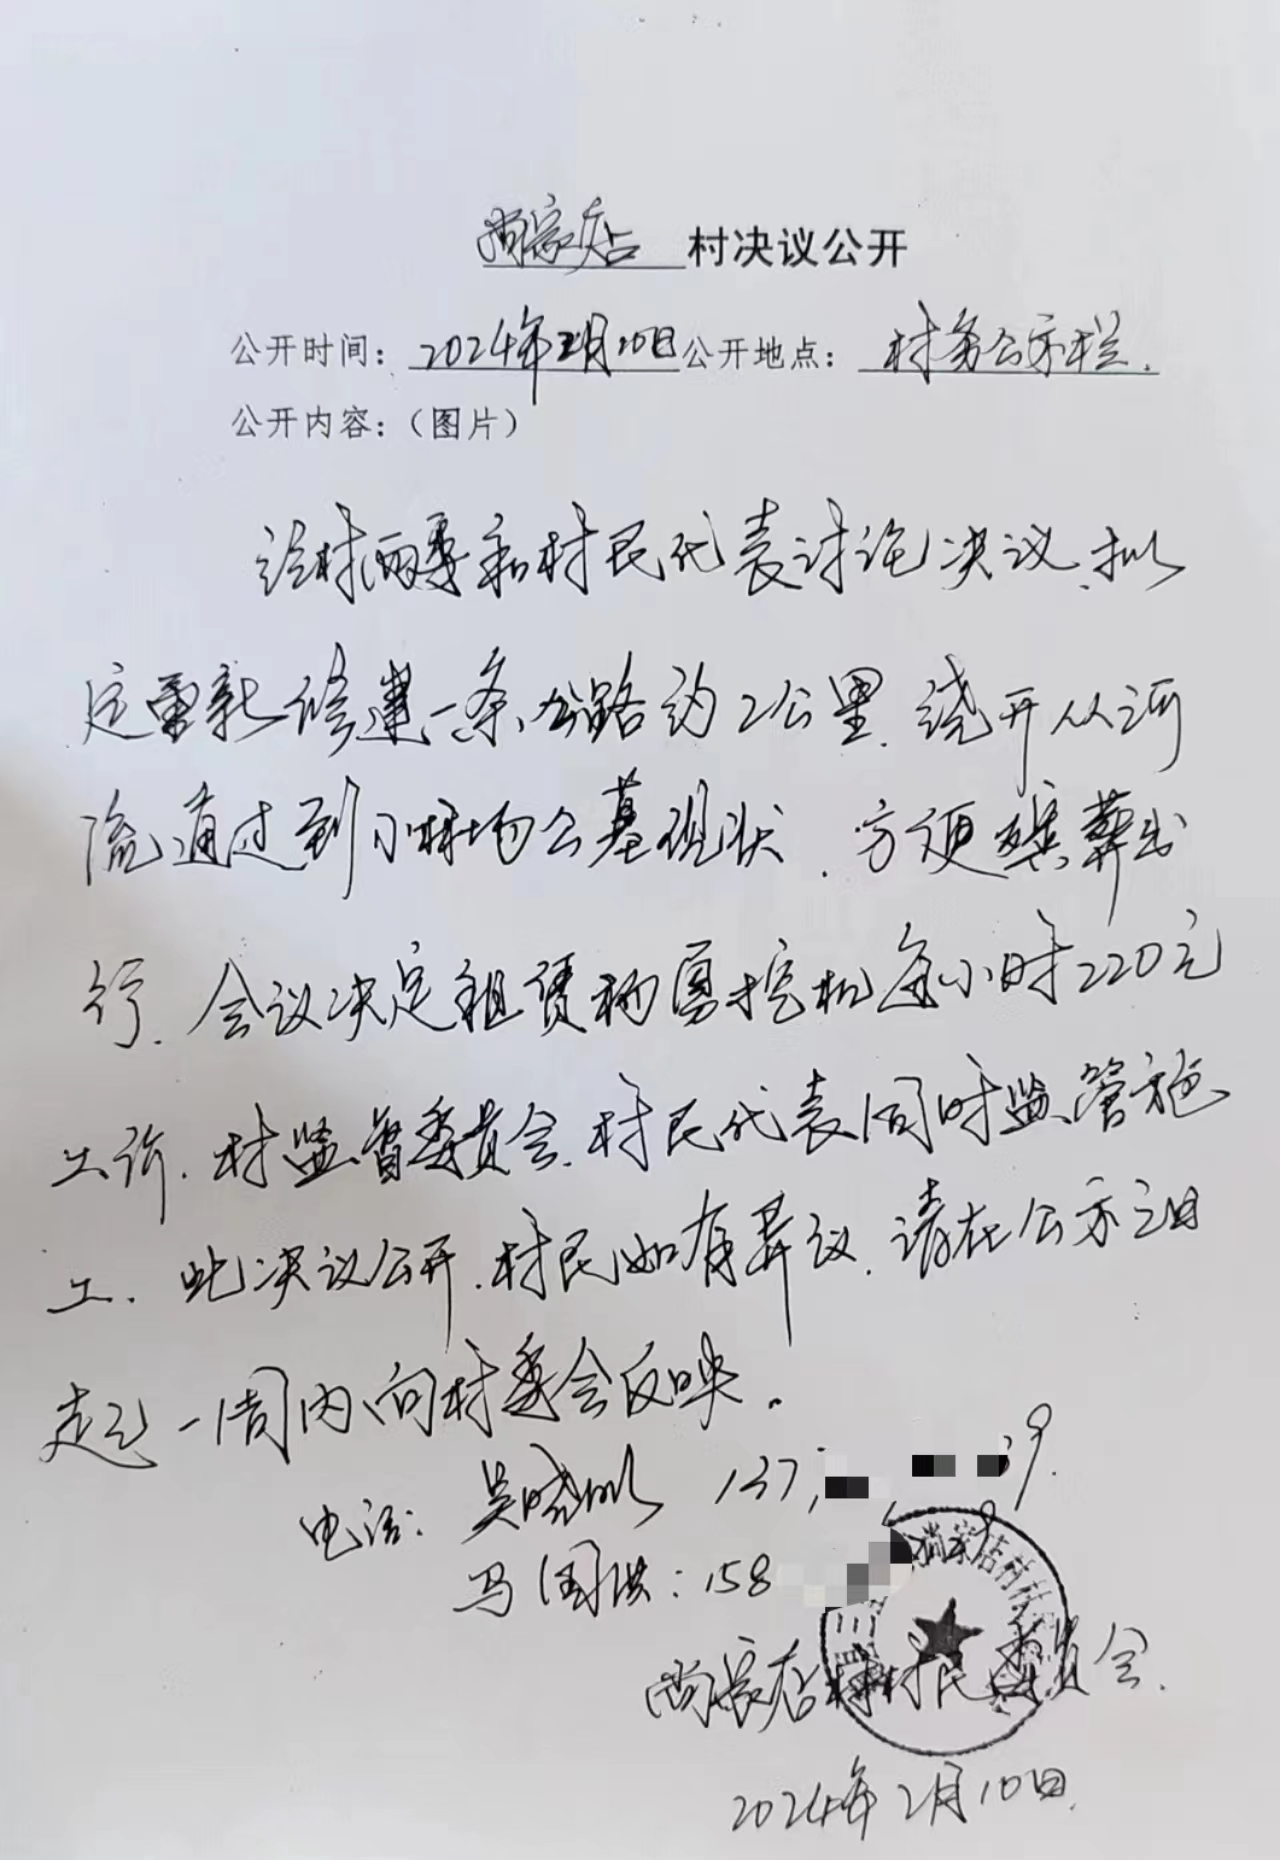 尚家店村决议公开
公开时间：2024年2月10日公开地点：村务公示栏.
公开内容：（图片）
经村两委和村民代表讨论决议、拟
定重新修建一条公路约2公里.绕开从河
流通过到小林场公墓现状.方便殡葬出
行.会议决定租赁杨勇挖机每小时220元
工价.村监督委员会.村民代表同时监管施
工.此决议公开.村民如有异议.请在公示之日
起一周内向村委会反映.
电话:吴晓 137 39.
马国洪:158
尚家店村村民委员会.
2024年2月10日.
尚家店村村